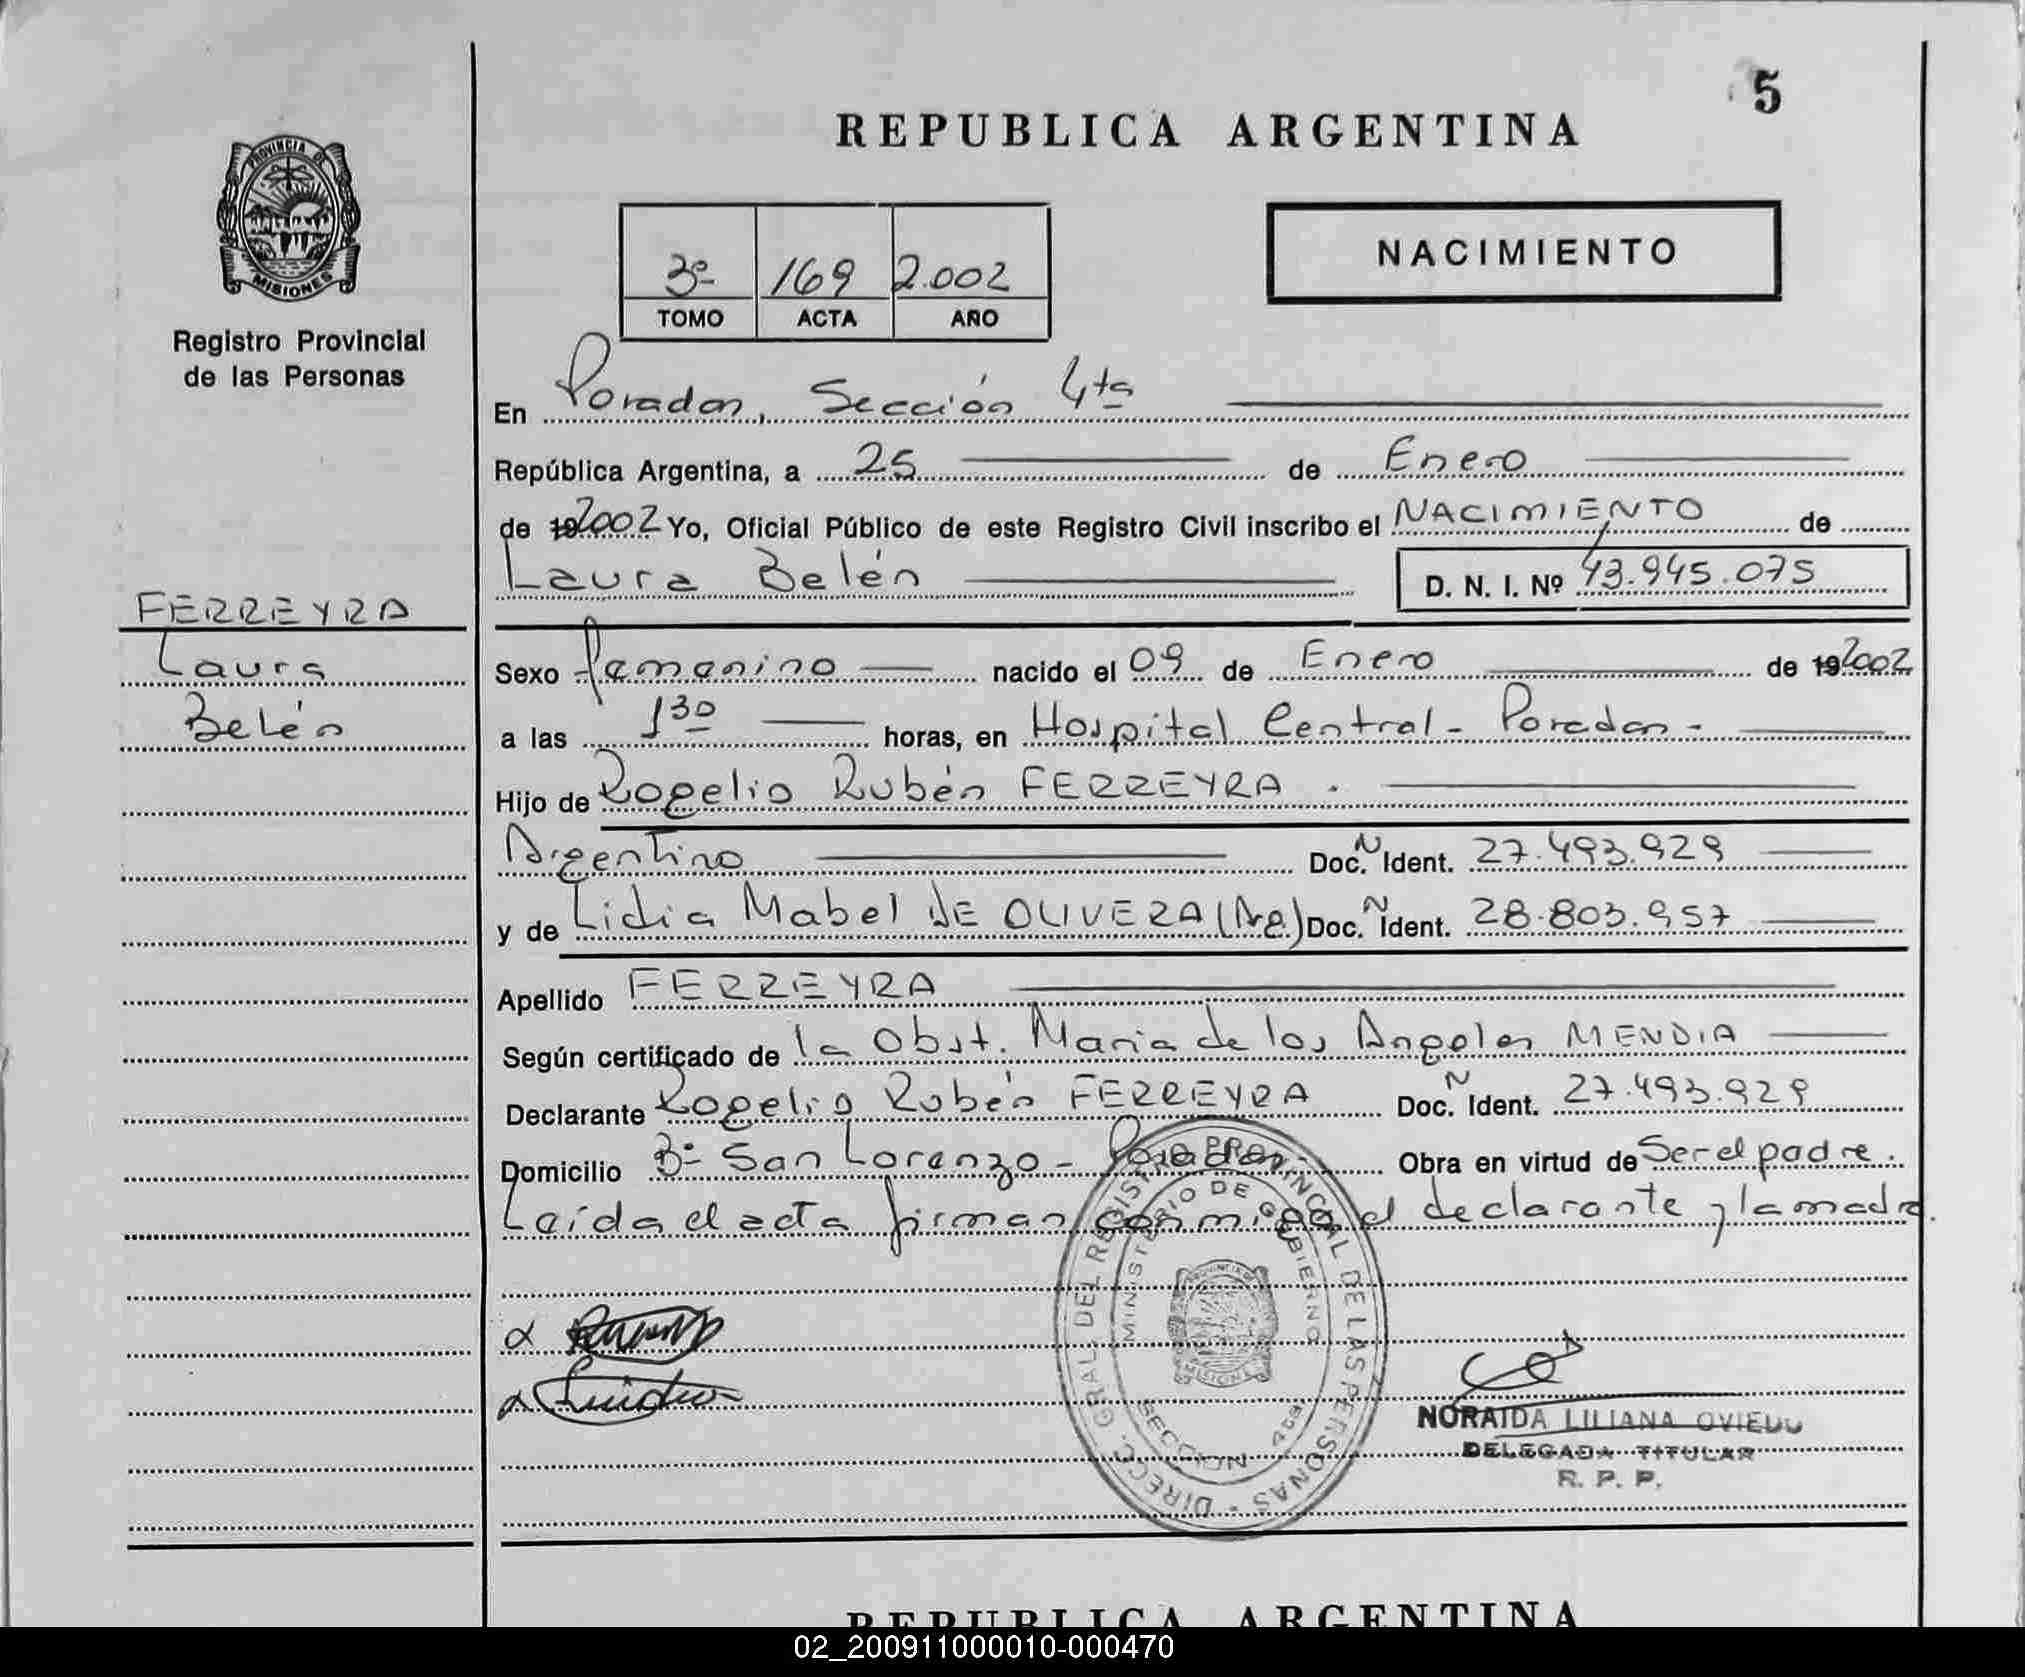 5
REPUBLICA ARGENTINA
PROVINCIA DE
MISIONES
Registro Provincial
de las Personas
3º 169 2.002
TOMO ACTA AÑO
NACIMIENTO
En Posadas, Sección 4ta
República Argentina, a 25 de Enero
de 192002 Yo, Oficial Público de este Registro Civil inscribo el NACIMIENTO de
Laura Belén D. N. I. Nº 43.945.075
FERREYRA
Laura
Belén
Sexo femenino nacido el 09 de Enero de 192002
a las 1 30 horas, en Hospital Central - Posadas -
Hijo de Rogelio Rubén FERREYRA .
Argentino Doc. N Ident. 27.493.929
y de Lidia Mabel DE OLIVERA (Arg.) Doc. N Ident. 28.803.957
Apellido FERREYRA
Según certificado de la Obst. María de los Angeles MENDIA
Declarante Rogelio Rubén FERREYRA Doc. N Ident. 27.493.929
Domicilio Bº San Lorenzo - Posadas Obra en virtud de Ser el padre.
Leída el acta firman conmigo el declarante y la madre.
DIRECC. GRAL. DEL REGISTRO PROVINCIAL DE LAS PERSONAS
MINISTERIO DE GOBIERNO
PROVINCIA DE
MISIONES
SECCION 4ta
NORAIDA LILIANA OVIEDO
DELEGADA TITULAR
R. P. P.
REPUBLICA ARGENTINA
02_200911000010-000470